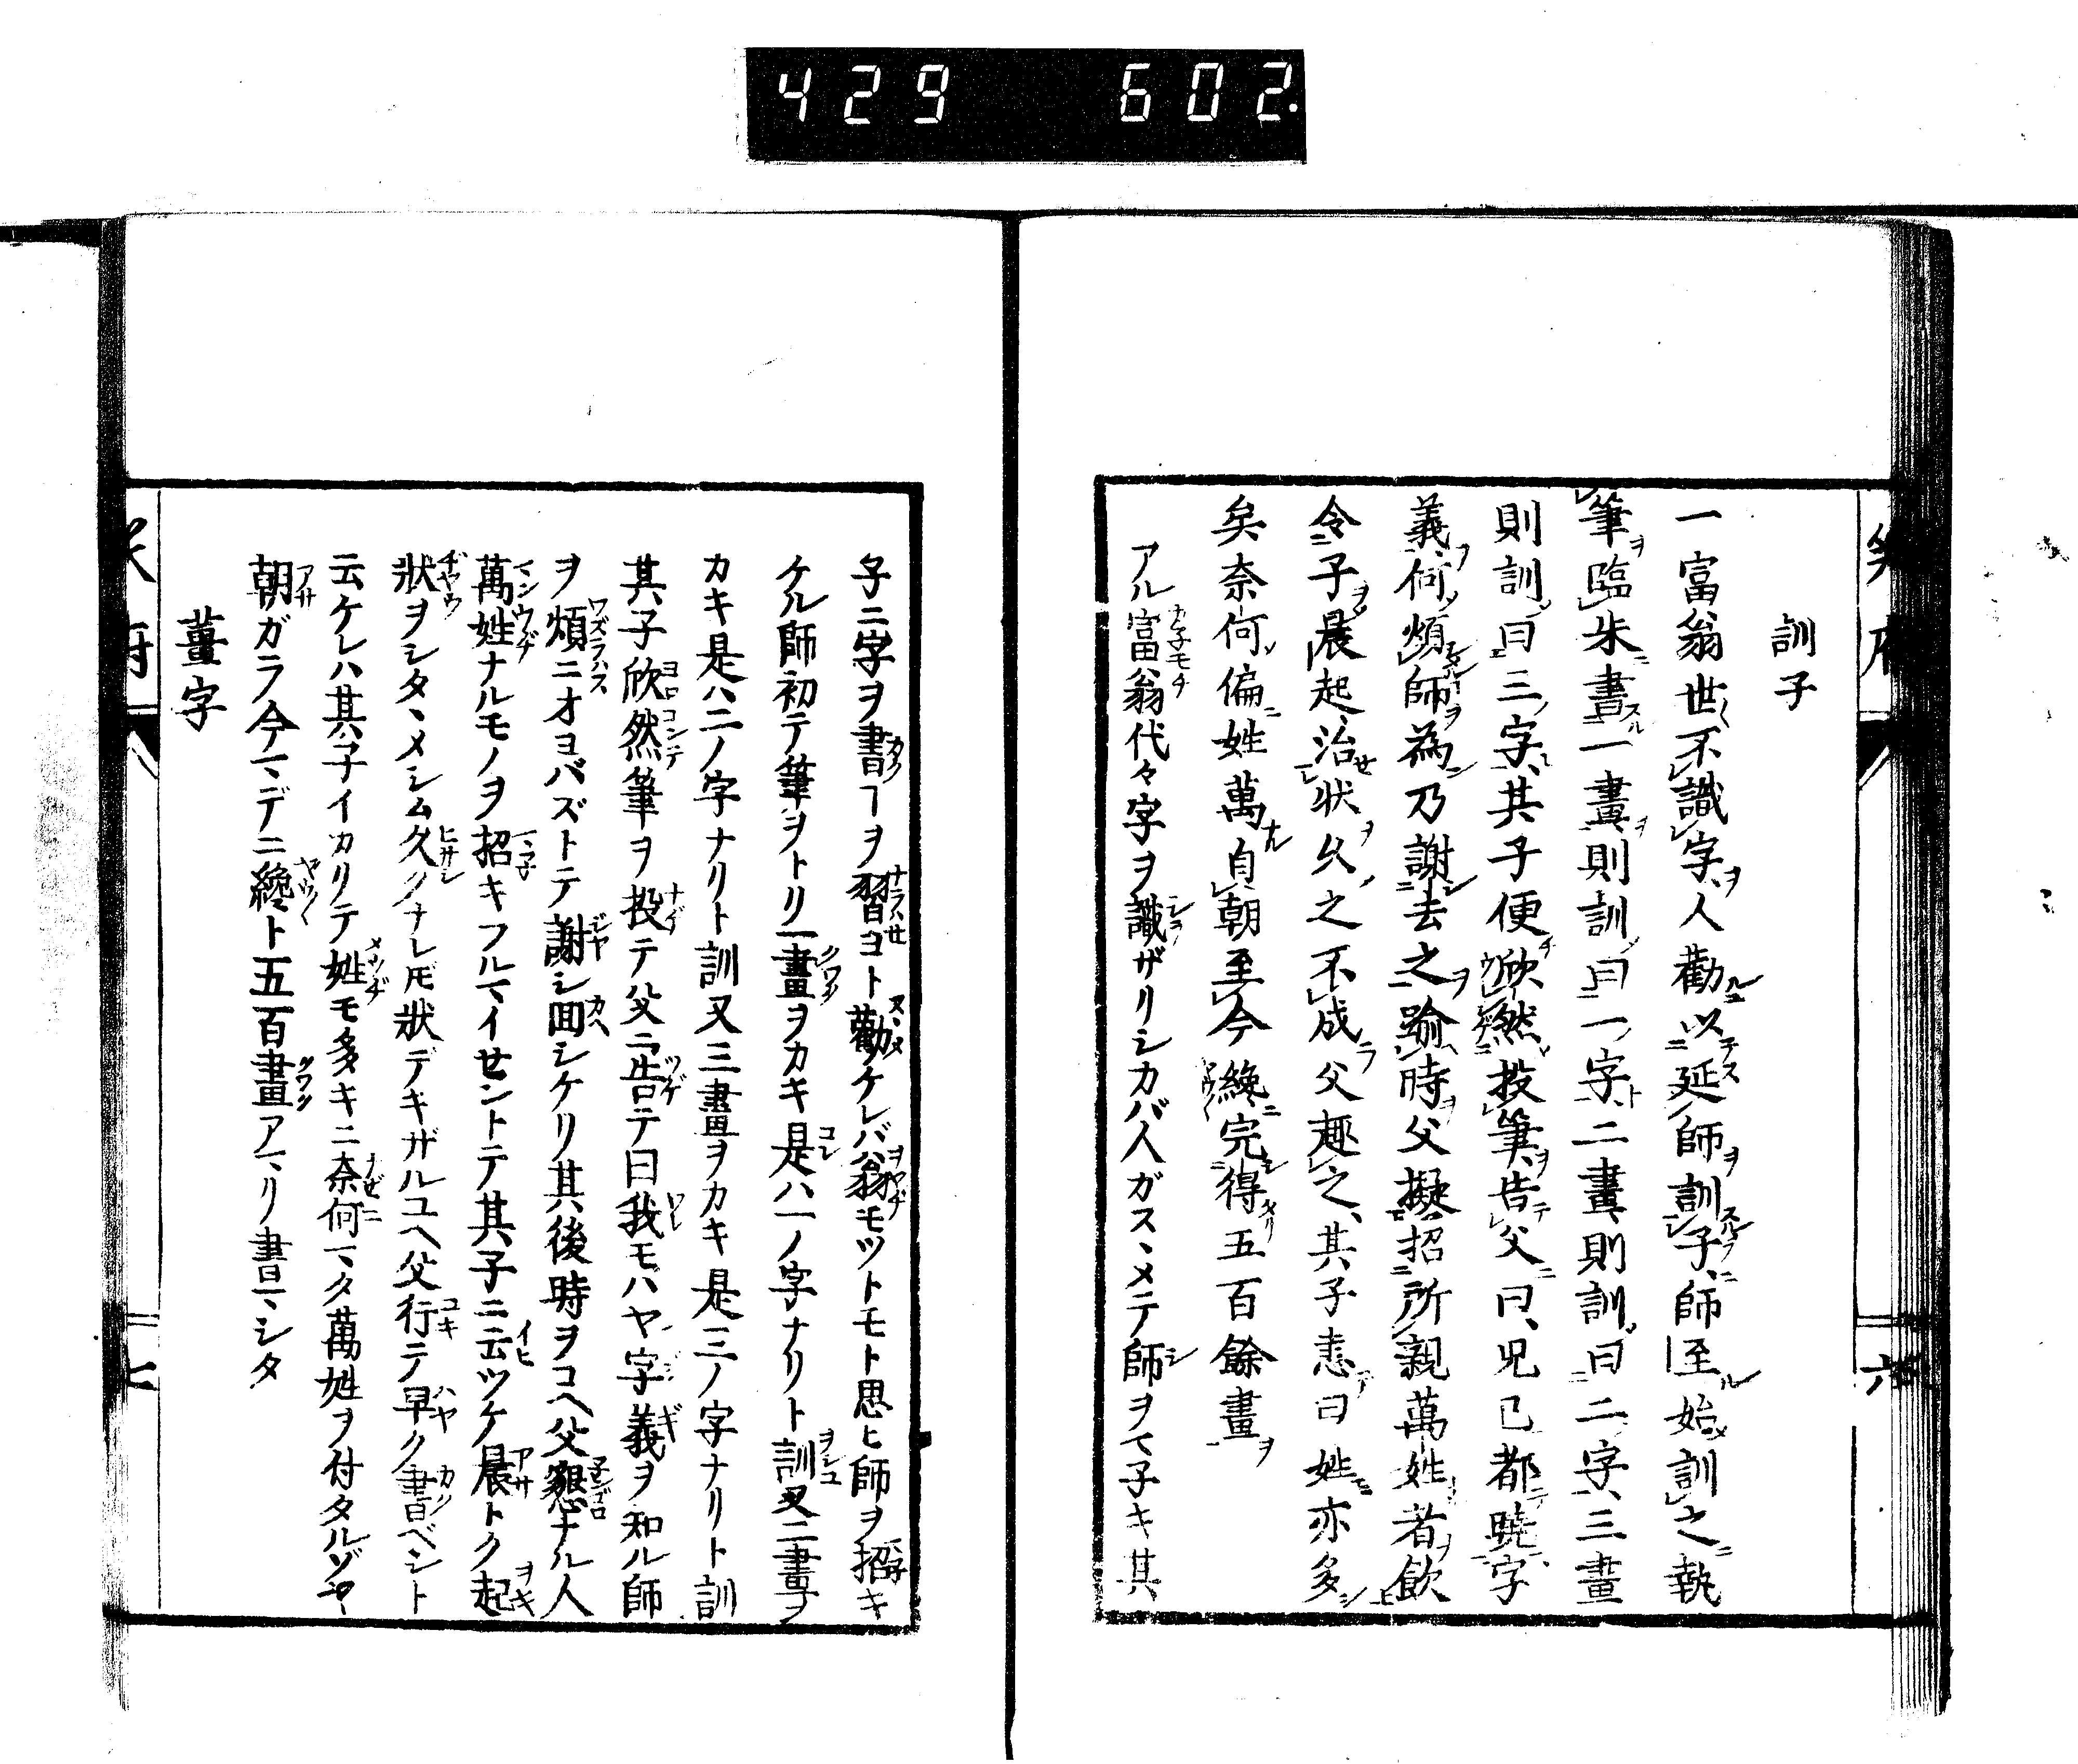 429 602.
訓子
一富翁世不識字人勸以延師訓子師至始訓之執
筆臨朱書一畫則訓曰一字二畫則訓曰二字三畫
則訓曰三字其子便欣然投筆告父曰児已都曉字
義何煩師為乃謝去之踰時父擬招所親萬姓者飲
令子晨起治狀久之不成父趣之其子恚曰姓亦多
矣奈何偏姓萬自朝至今纔完得五百餘畫
アル富翁代々字ヲ識ザリシカバ人ガスヽメテ師ヲ〆子キ其
子ニ字ヲ書ヿヲ習ヨト勸ケレバ翁モツトモト思ヒ師ヲ招キ
ケル師初テ筆ヲトリ一畫ヲカキ是ハ一ノ字ナリト訓又二畫ヲ
カキ是ハ二ノ字ナリト訓又三畫ヲカキ是三ノ字ナリト訓
其子欣然筆ヲ投テ父ニ告テ曰我モハヤ字義ヲ知ル師
ヲ煩ニオヨバズトテ謝シ囬シケリ其後時ヲコヘ父懇ナル人
萬姓ナルモノヲ招キフルマイセントテ其子ニ云ツケ晨トク起
狀ヲシタヽメシム久クナレ𪜈狀デキザルユヘ父行テ早ク書ベシト
云ケレハ其子イカリテ姓モ多キニ奈何マタ萬姓ヲ付タルゾヤ
朝ガラ今マデニ纔ト五百畫アマリ書マシタ
薑字
笑府
六
七